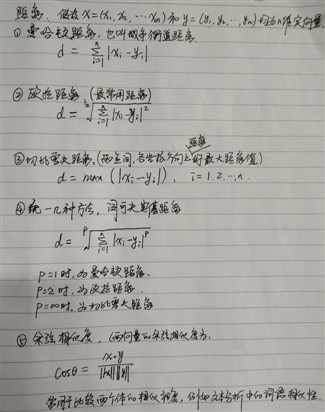 距离. 假设 x=(x₁, x₂, … xₙ) 和 y=(y₁, y₂, …, yₙ) 均为n维实向量
① 曼哈顿距离, 也叫城市街道距离.
d = ∑ᵢ₌₁ⁿ |xᵢ-yᵢ|
② 欧拉距离, (最常用距离)
d = √(∑ᵢ₌₁ⁿ |xᵢ-yᵢ|²)
距离
③ 切比雪夫距离, (两空间, 各坐标方向上的最大距离值)
d = max ( |xᵢ-yᵢ| ), i = 1. 2. …, n.
④ 统一几种方法, 闵可夫斯基距离
d = ᵖ√(∑ᵢ₌₁ⁿ |xᵢ-yᵢ|ᵖ)
p=1时, 为曼哈顿距离.
p=2时, 为欧拉距离.
p=∞时, 为切比雪夫距离
⑤ 余弦相似度, 两向量的余弦相似度为.
cosθ = x·y / ||x|| ||y||
常用于比较两个体的相似程度, 例如文本分析中的词语相似性.